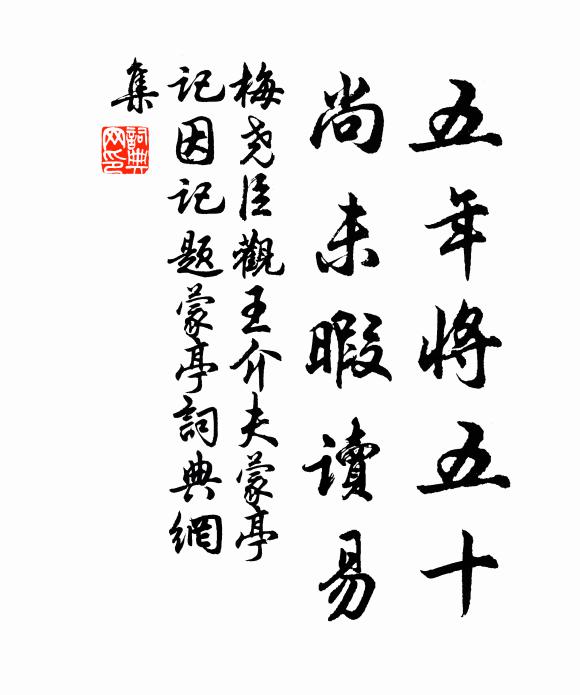 五年將五十
尚未暇讀易
梅堯臣觀王介夫蒙亭
記因記題蒙亭詞典網
集
詞典
网印